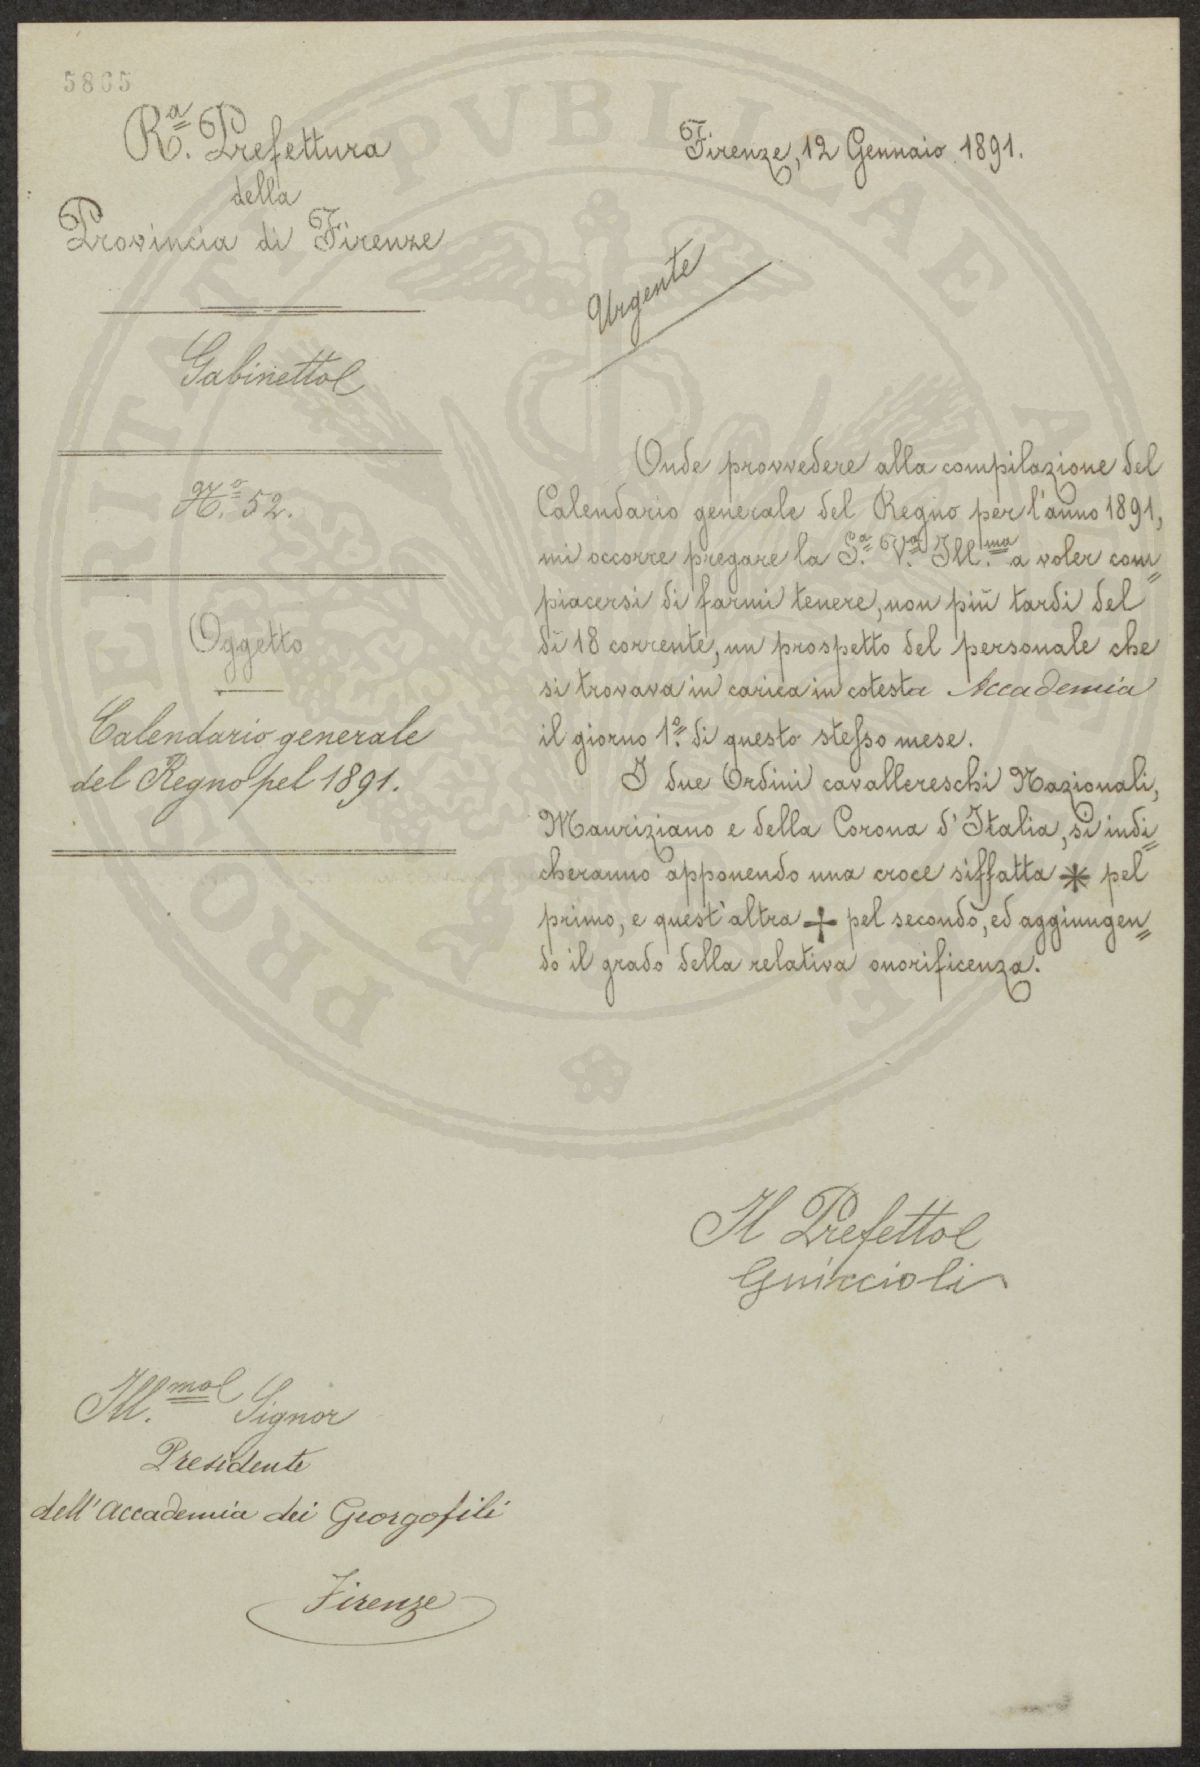 5865
R.ª Prefettura
della
Provincia di Firenze
Gabinetto
N.º 52.
Oggetto
Calendario generale
del Regno pel 1891.
Firenze, 12 Gennaio 1891.
Urgente
Onde provvedere alla compilazione del
Calendario generale del Regno per l'anno 1891,
mi occorre pregare la S.ª V.ª Ill.ma a voler com=
piacersi di farmi tenere, non più tardi del
dì 18 corrente, un prospetto del personale che
si trovava in carica in cotesta Accademia
il giorno 1.º di questo stesso mese.
I due Ordini cavallereschi Nazionali,
Mauriziano e della Corona d'Italia, si indi=
cheranno apponendo una croce siffatta * pel
primo, e quest'altra + pel secondo, ed aggiungen=
do il grado della relativa onorificenza.
Il Prefetto
Guiccioli
Ill.mo Signor
Presidente
dell'Accademia dei Georgofili
Firenze
PROSPERITATI PVBLICAE AVGENDAE